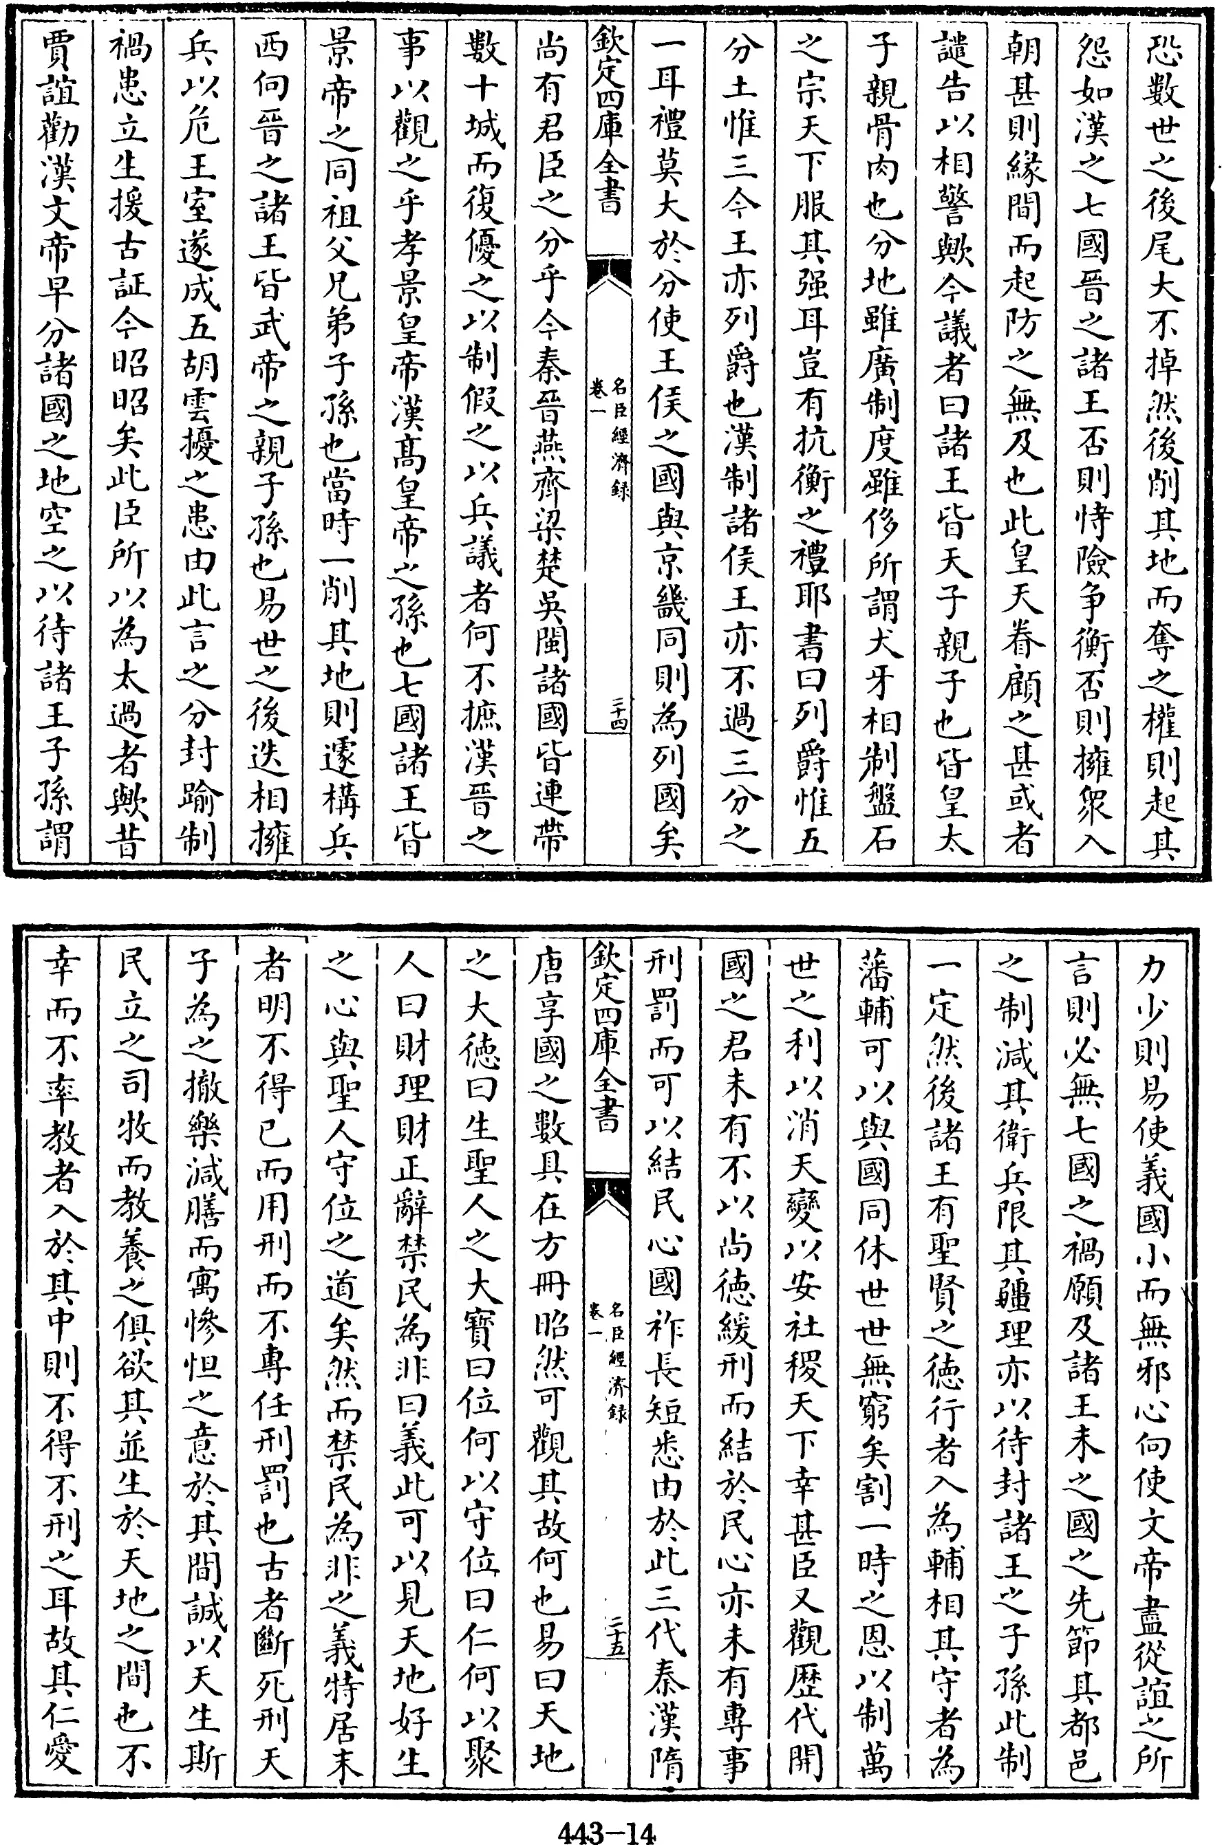 恐數世之後尾大不掉然後削其地而奪之權則起其
怨如漢之七國晉之諸王否則恃險争衡否則擁衆入
朝甚則緣間而起防之無及也此皇天眷顧之甚或者
譴告以相警歟今議者曰諸王皆天子親子也皆皇太
子親骨肉也分地雖廣制度雖侈所謂犬牙相制盤石
之宗天下服其强耳豈有抗衡之禮耶書曰列爵惟五
分土惟三今王亦列爵也漢制諸侯王亦不過三分之
一耳禮莫大於分使王侯之國與京畿同則為列國矣
欽定四庫全書
名臣經濟録
卷一
二十四
尚有君臣之分乎今秦晉燕齊梁楚吳閩諸國皆連帶
數十城而復優之以制假之以兵議者何不摭漢晉之
事以觀之乎孝景皇帝漢髙皇帝之孫也七國諸王皆
景帝之同祖父兄弟子孫也當時一削其地則遽構兵
西向晉之諸王皆武帝之親子孫也易世之後迭相擁
兵以危王室遂成五胡雲擾之患由此言之分封踰制
禍患立生援古証今昭昭矣此臣所以為太過者歟昔
賈誼勸漢文帝早分諸國之地空之以待諸王子孫謂
力少則易使義國小而無邪心向使文帝盡從誼之所
言則必無七國之禍願及諸王未之國之先節其都邑
之制減其衛兵限其疆理亦以待封諸王之子孫此制
一定然後諸王有聖賢之徳行者入為輔相其守者為
藩輔可以與國同休世世無窮矣割一時之恩以制萬
世之利以消天變以安社稷天下幸甚臣又觀歴代開
國之君未有不以尚徳緩刑而結於民心亦未有專事
刑罰而可以結民心國祚長短悉由於此三代秦漢隋
欽定四庫全書
名臣經濟録
卷一
二十五
唐享國之數具在方冊昭然可觀其故何也易曰天地
之大徳曰生聖人之大寳曰位何以守位曰仁何以聚
人曰財理財正辭禁民為非曰義此可以見天地好生
之心與聖人守位之道矣然而禁民為非之義特居末
者明不得已而用刑而不專任刑罰也古者斷死刑天
子為之撤樂減膳而寓慘怛之意於其間誠以天生斯
民立之司牧而教養之俱欲其並生於天地之間也不
幸而不率教者入於其中則不得不刑之耳故其仁愛
443-14